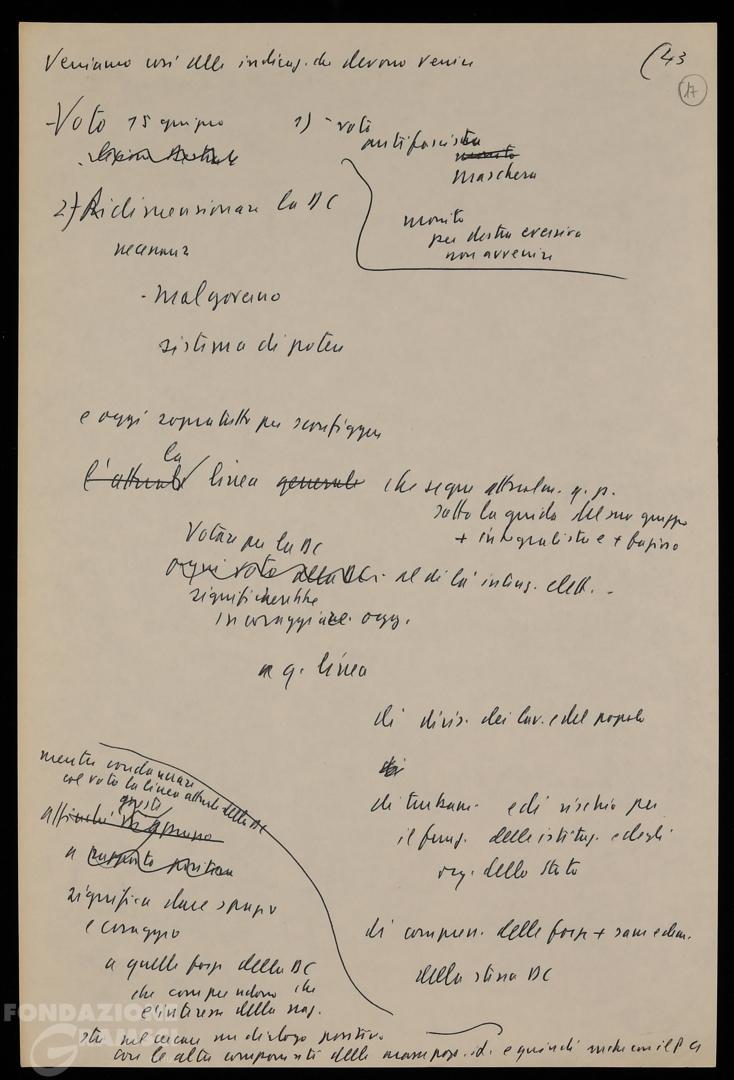 Veniamo così alle indicaz. che devono venire
(43
17
- Voto 15 giugno
1) - voto
antifascista
maschera
monito
per destra eversiva
non avvenire
2) Ridimensionare la DC
necessario
- malgoverno
sistema di potere
e oggi soprattutto per sconfiggere
la
l'attuale linea generale che segue attualm. q. p.
sotto la guida del suo gruppo
+ integralista e + fazioso
Votare per la DC
ogni voto alla DC - al di là intenz. elett. -
significherebbe
incoraggiare oggi
a q. linea
di divis. dei lav. e del popolo
di turbam. e di rischio per
il funz. delle istituz. e degli
org. dello Stato
di compress. delle forze + sane e dem.
della stessa DC
mentre condannare
col voto la linea attuale della DC
a
significa dare spazio
e coraggio
a quelle forze della DC
che comprendono che
l'interesse della naz.
sta nel cercare un dialogo positivo
con le altre componenti delle masse pop. id. e quindi anche con il PCI
FONDAZIONE
GRAMSCI